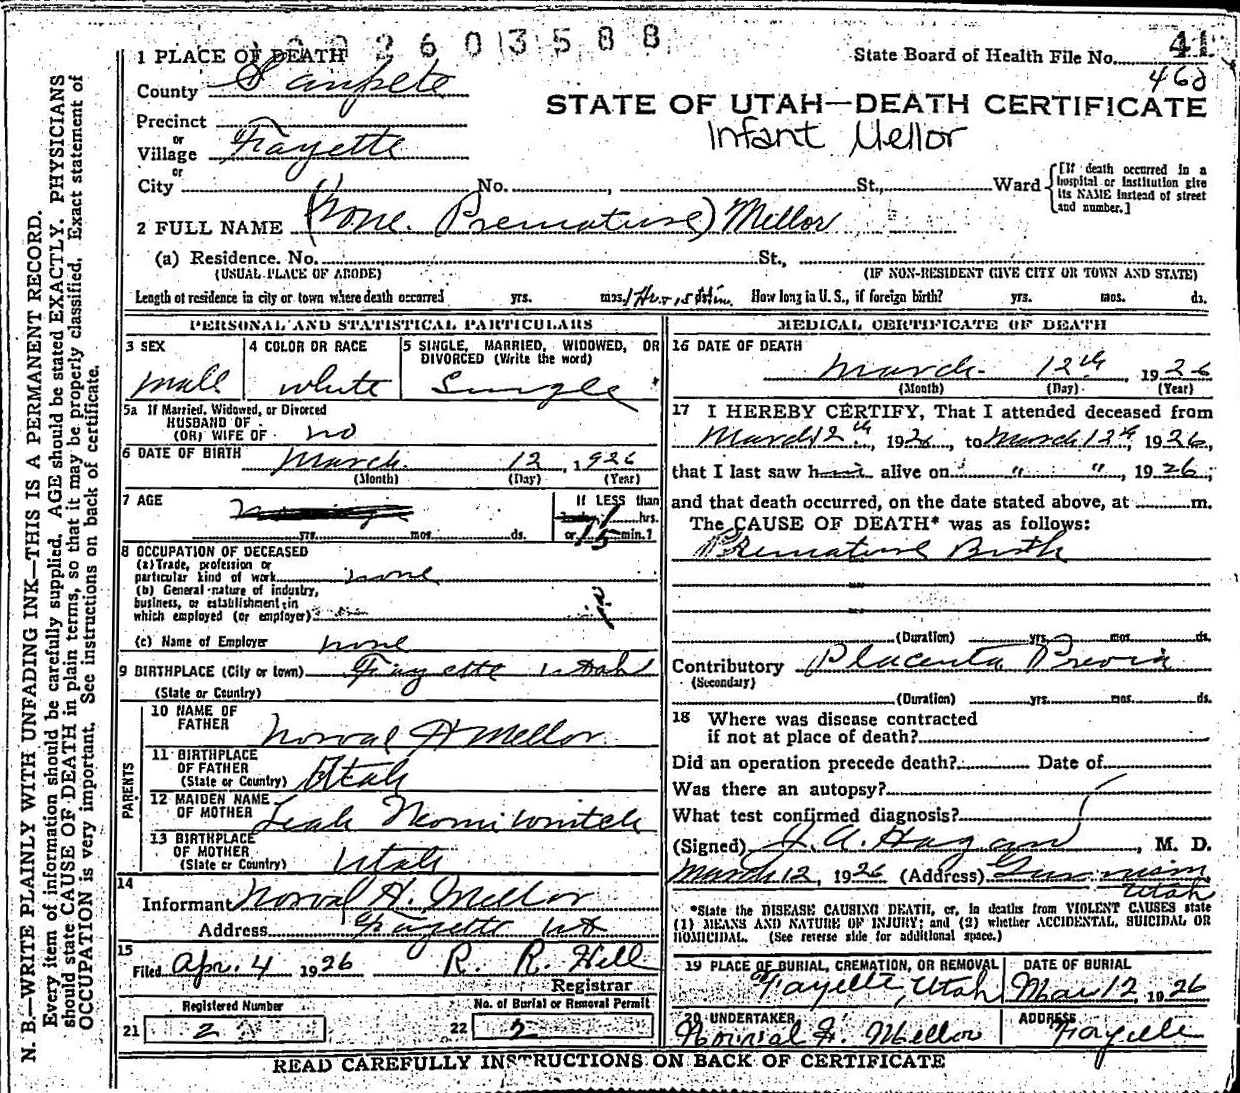 2603588
1 PLACE OF DEATH
State Board of Health File No. 41
468
County Sanpete
STATE OF UTAH—DEATH CERTIFICATE
Infant Mellor
Precinct
or
Village Fayette
or
City No. , St., Ward
[If death occurred in a hospital or institution give its NAME instead of street and number.]
2 FULL NAME (None. Premature) Mellor
(a) Residence. No. St.,
(USUAL PLACE OF ABODE) (IF NON-RESIDENT GIVE CITY OR TOWN AND STATE)
Length of residence in city or town where death occurred yrs. mos. 1 Hr + 15 Min. How long in U. S., if foreign birth? yrs. mos. ds.
PERSONAL AND STATISTICAL PARTICULARS
3 SEX 4 COLOR OR RACE 5 SINGLE, MARRIED, WIDOWED, OR
DIVORCED (Write the word)
Male White Single
5a If Married, Widowed, or Divorced
HUSBAND OF
(OR) WIFE OF no
6 DATE OF BIRTH March 12, 1926
(Month) (Day) (Year)
7 AGE If LESS than
1 hrs.
yrs. mos. ds. or 15 min.?
8 OCCUPATION OF DECEASED
(a) Trade, profession or
particular kind of work none
(b) General nature of industry,
business, or establishment in
which employed (or employer)
(c) Name of Employer none
9 BIRTHPLACE (City or town) Fayette Utah
(State or Country)
PARENTS
10 NAME OF
FATHER Norval H Mellor
11 BIRTHPLACE
OF FATHER
(State or Country) Utah
12 MAIDEN NAME
OF MOTHER Leah Neomi
13 BIRTHPLACE
OF MOTHER
(State or Country) Utah
14
Informant Norval H. Mellor
Address Fayette Ut
15
Filed Apr. 4 1926 R. R. Hill
Registrar
Registered Number No. of Burial or Removal Permit
21 2 22 2
MEDICAL CERTIFICATE OF DEATH
16 DATE OF DEATH
March 12th 1926
(Month) (Day) (Year)
17 I HEREBY CERTIFY, That I attended deceased from
March 12th, 1926, to March 12th, 1926,
that I last saw him alive on " " ", 1926;
and that death occurred, on the date stated above, at m.
The CAUSE OF DEATH* was as follows:
Premature Birth
(Duration) yrs. mos. ds.
Contributory Placenta Previa
(Secondary)
(Duration) yrs. mos. ds.
18 Where was disease contracted
if not at place of death?
Did an operation precede death? Date of
Was there an autopsy?
What test confirmed diagnosis?
(Signed) J. A. Hagan, M. D.
March 12, 1926 (Address) Gunnison,
Utah
*State the DISEASE CAUSING DEATH, or, in deaths from VIOLENT CAUSES state
(1) MEANS AND NATURE OF INJURY; and (2) whether ACCIDENTAL, SUICIDAL OR
HOMICIDAL. (See reverse side for additional space.)
19 PLACE OF BURIAL, CREMATION, OR REMOVAL DATE OF BURIAL
Fayette, Utah Mar 12 1926
20 UNDERTAKER ADDRESS
Norval H. Mellor Fayette
READ CAREFULLY INSTRUCTIONS ON BACK OF CERTIFICATE
N. B.—WRITE PLAINLY WITH UNFADING INK—THIS IS A PERMANENT RECORD.
Every item of information should be carefully supplied. AGE should be stated EXACTLY. PHYSICIANS
should state CAUSE OF DEATH in plain terms, so that it may be properly classified. Exact statement of
OCCUPATION is very important. See instructions on back of certificate.